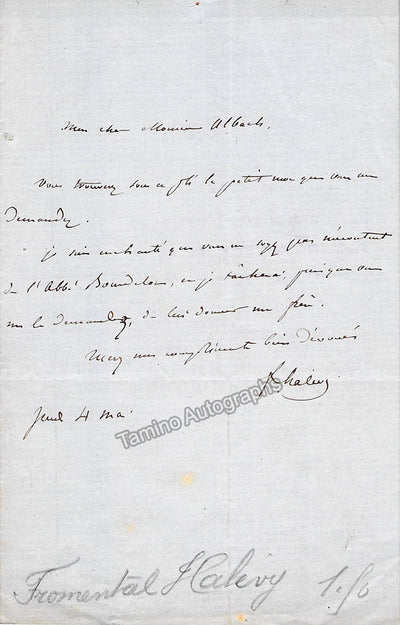 Mon cher Monsieur Albach,
Vous trouverez sous ce pli le petit mot que vous me
demandez.
je suis enchanté que vous ne soyez pas mécontent
de l'Abbé et je tâcherai, puisque vous
me le demandez, de lui donner un frère.
Mes compliments bien dévoués
FHalévy
Jeudi 4 mai
Tamino Autographs
Fromental Halévy